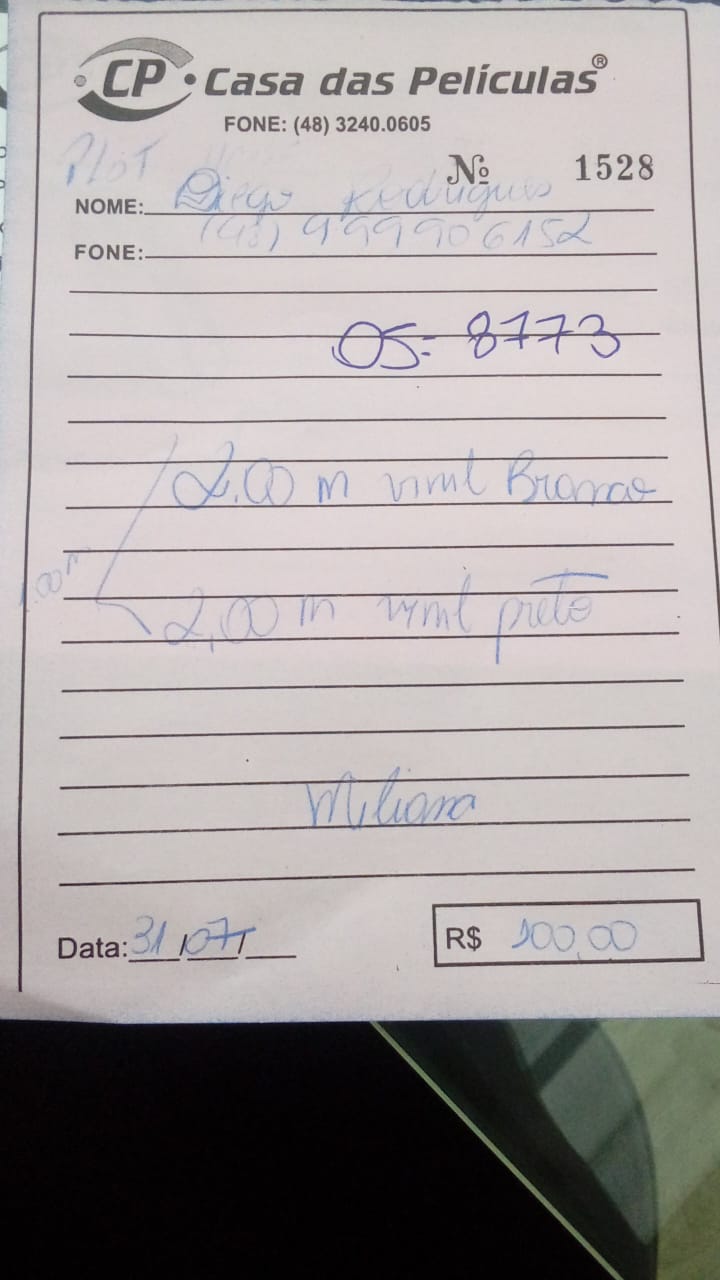 CP Casa das Películas®
FONE: (48) 3240.0605
PLOT
Nº 1528
NOME: Diego Rodrigues
FONE: (48) 999906152
OS: 8773
2,00 m vinil Branco
1,00 m
2,00 m vinil preto
Data: 31/07/
R$ 100,00